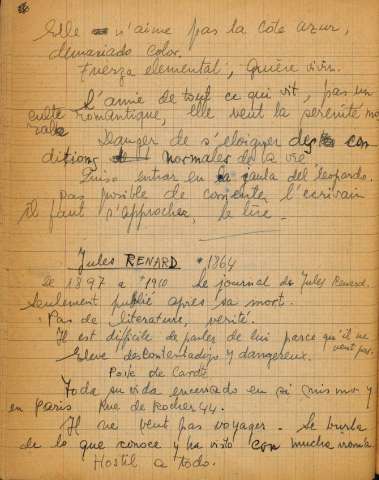 Elle n'aime pas la cote azur,
demasiado color.
Fuerza elemental, Quiere vivir.
L'amie de tout ce qui vit, pas un
culte romantique, elle veut la serenité mo
rale
Danger de s'eloigner des con
ditions normales de la vie
Quiso entrar en la jaula del leopardo.
pas posible de comenter l'écrivain
il faut s'approcher, le lire.
Jules RENARD * 1864
le 1897 a +1910 Le journal de Jules Renard.
Seulement publié apres sa mort.
Pas de literature, verité.
Il est difficile de parler de lui parce qu'il ne
veut pas.
Eleve descontentadizo y dangereux.
de Carde
Toda su vida encerrado en si mismo y
en Paris Rue de Rocher 44.
Il ne veut pas voyager. Se burla
de lo que conoce y ha visto con mucha ironia.
Hostil a todo.